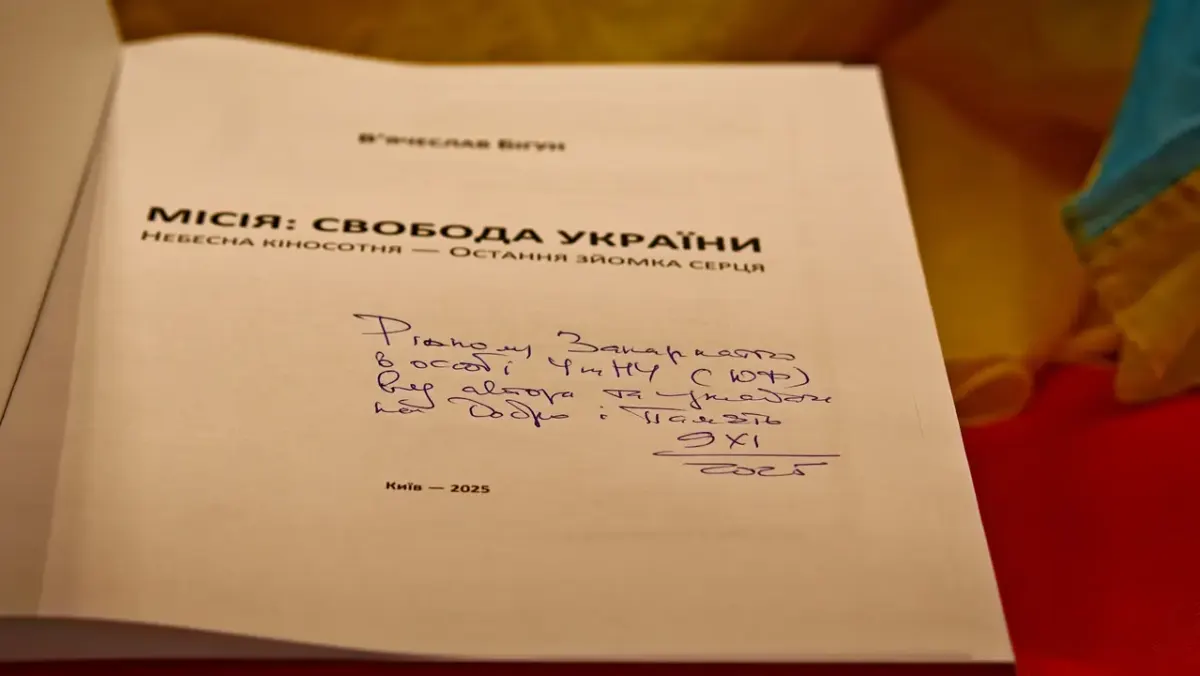 В'ячеслав Бігун
МІСІЯ: СВОБОДА УКРАЇНИ
Небесна кіносотня — Остання зйомка серця
Рідному Закарпаттю
в особі УжНУ (ЮФ)
від автора та
на Добро і Пам'ять
9 XI
2025
Київ — 2025